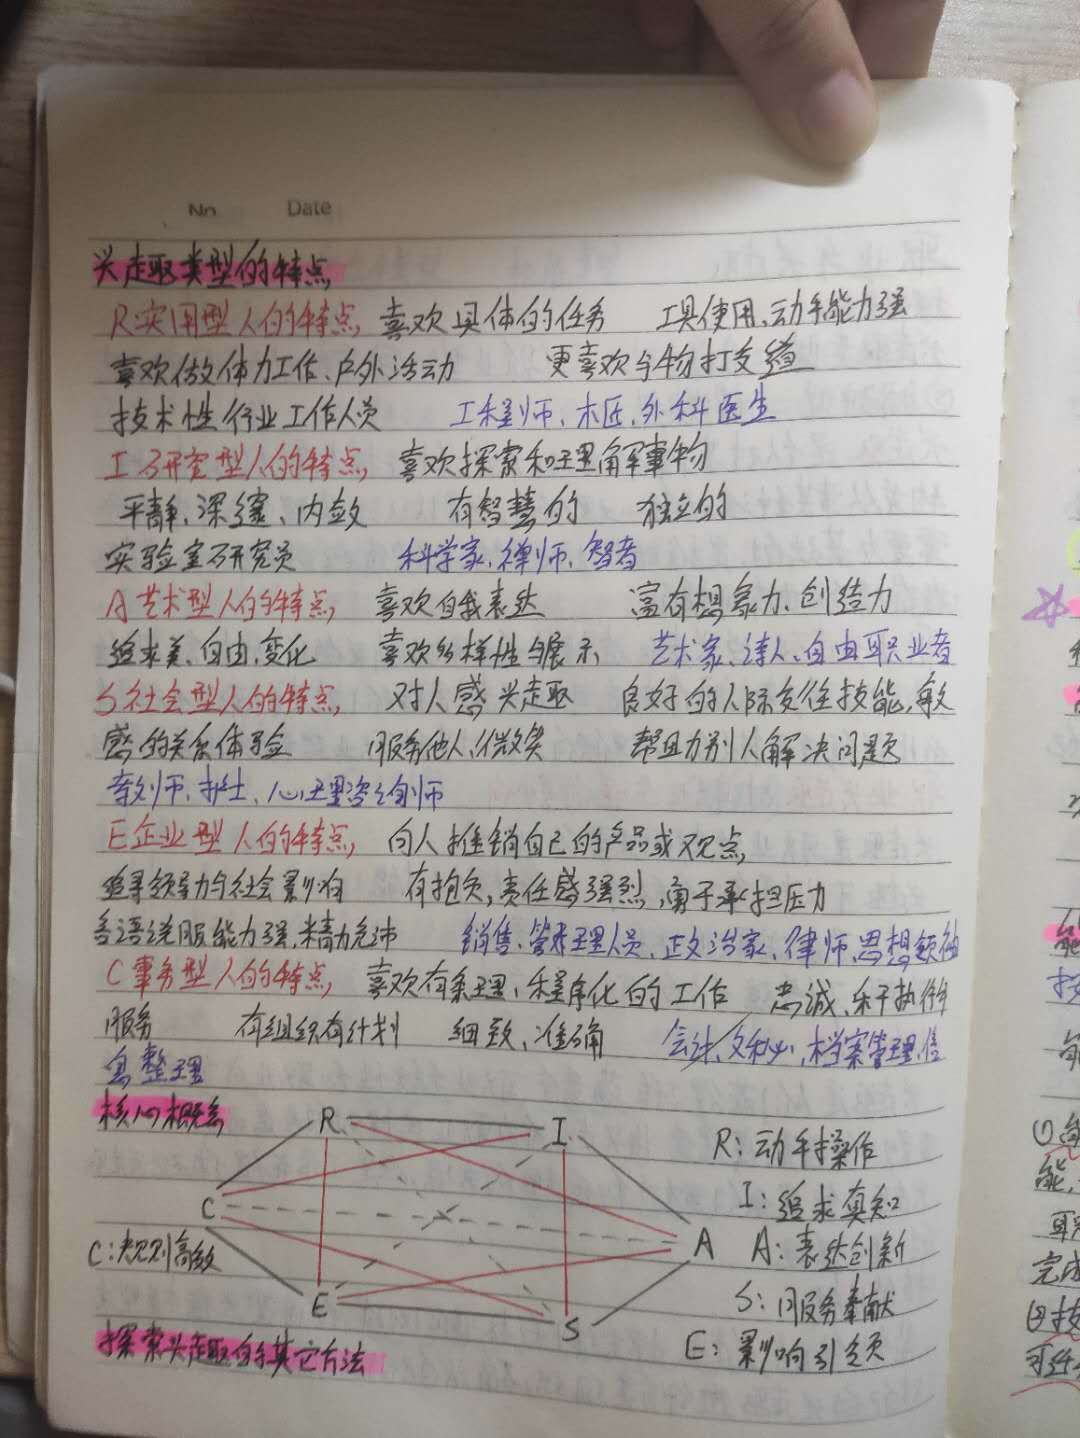 No    Date
兴趣类型的特点
R实用型人的特点, 喜欢具体的任务 工具使用、动手能力强
喜欢做体力工作、户外活动 更喜欢与物打交道
技术性行业工作人员 工程师、木匠、外科医生
I研究型人的特点, 喜欢探索和理解事物
平静、深邃、内敛 有智慧的 独立的
实验室研究员 科学家、禅师、智者
A艺术型人的特点, 喜欢自我表达 富有想象力、创造力
追求美、自由、变化 喜欢多样性与展示 艺术家、诗人、自由职业者
S社会型人的特点, 对人感兴趣 良好的人际交往技能,敏
感的关系体验 服务他人、微笑 帮助别人解决问题
教师、护士、心理咨询师
E企业型人的特点, 向人推销自己的产品或观点,
追寻领导力与社会影响 有抱负,责任感强烈,勇于承担压力
言语说服能力强,精力充沛 销售、管理人员、政治家、律师、思想领袖
C事务型人的特点, 喜欢有条理、程序化的工作 忠诚、利于执行
服务 有组织有计划 细致、准确 会计、文秘、档案管理、信
息整理
核心概念
R I
R:动手操作
I:追求真知
C
A A:表达创新
C:规则高效
E S
S:服务奉献
E:影响引领
探索兴趣的其它方法